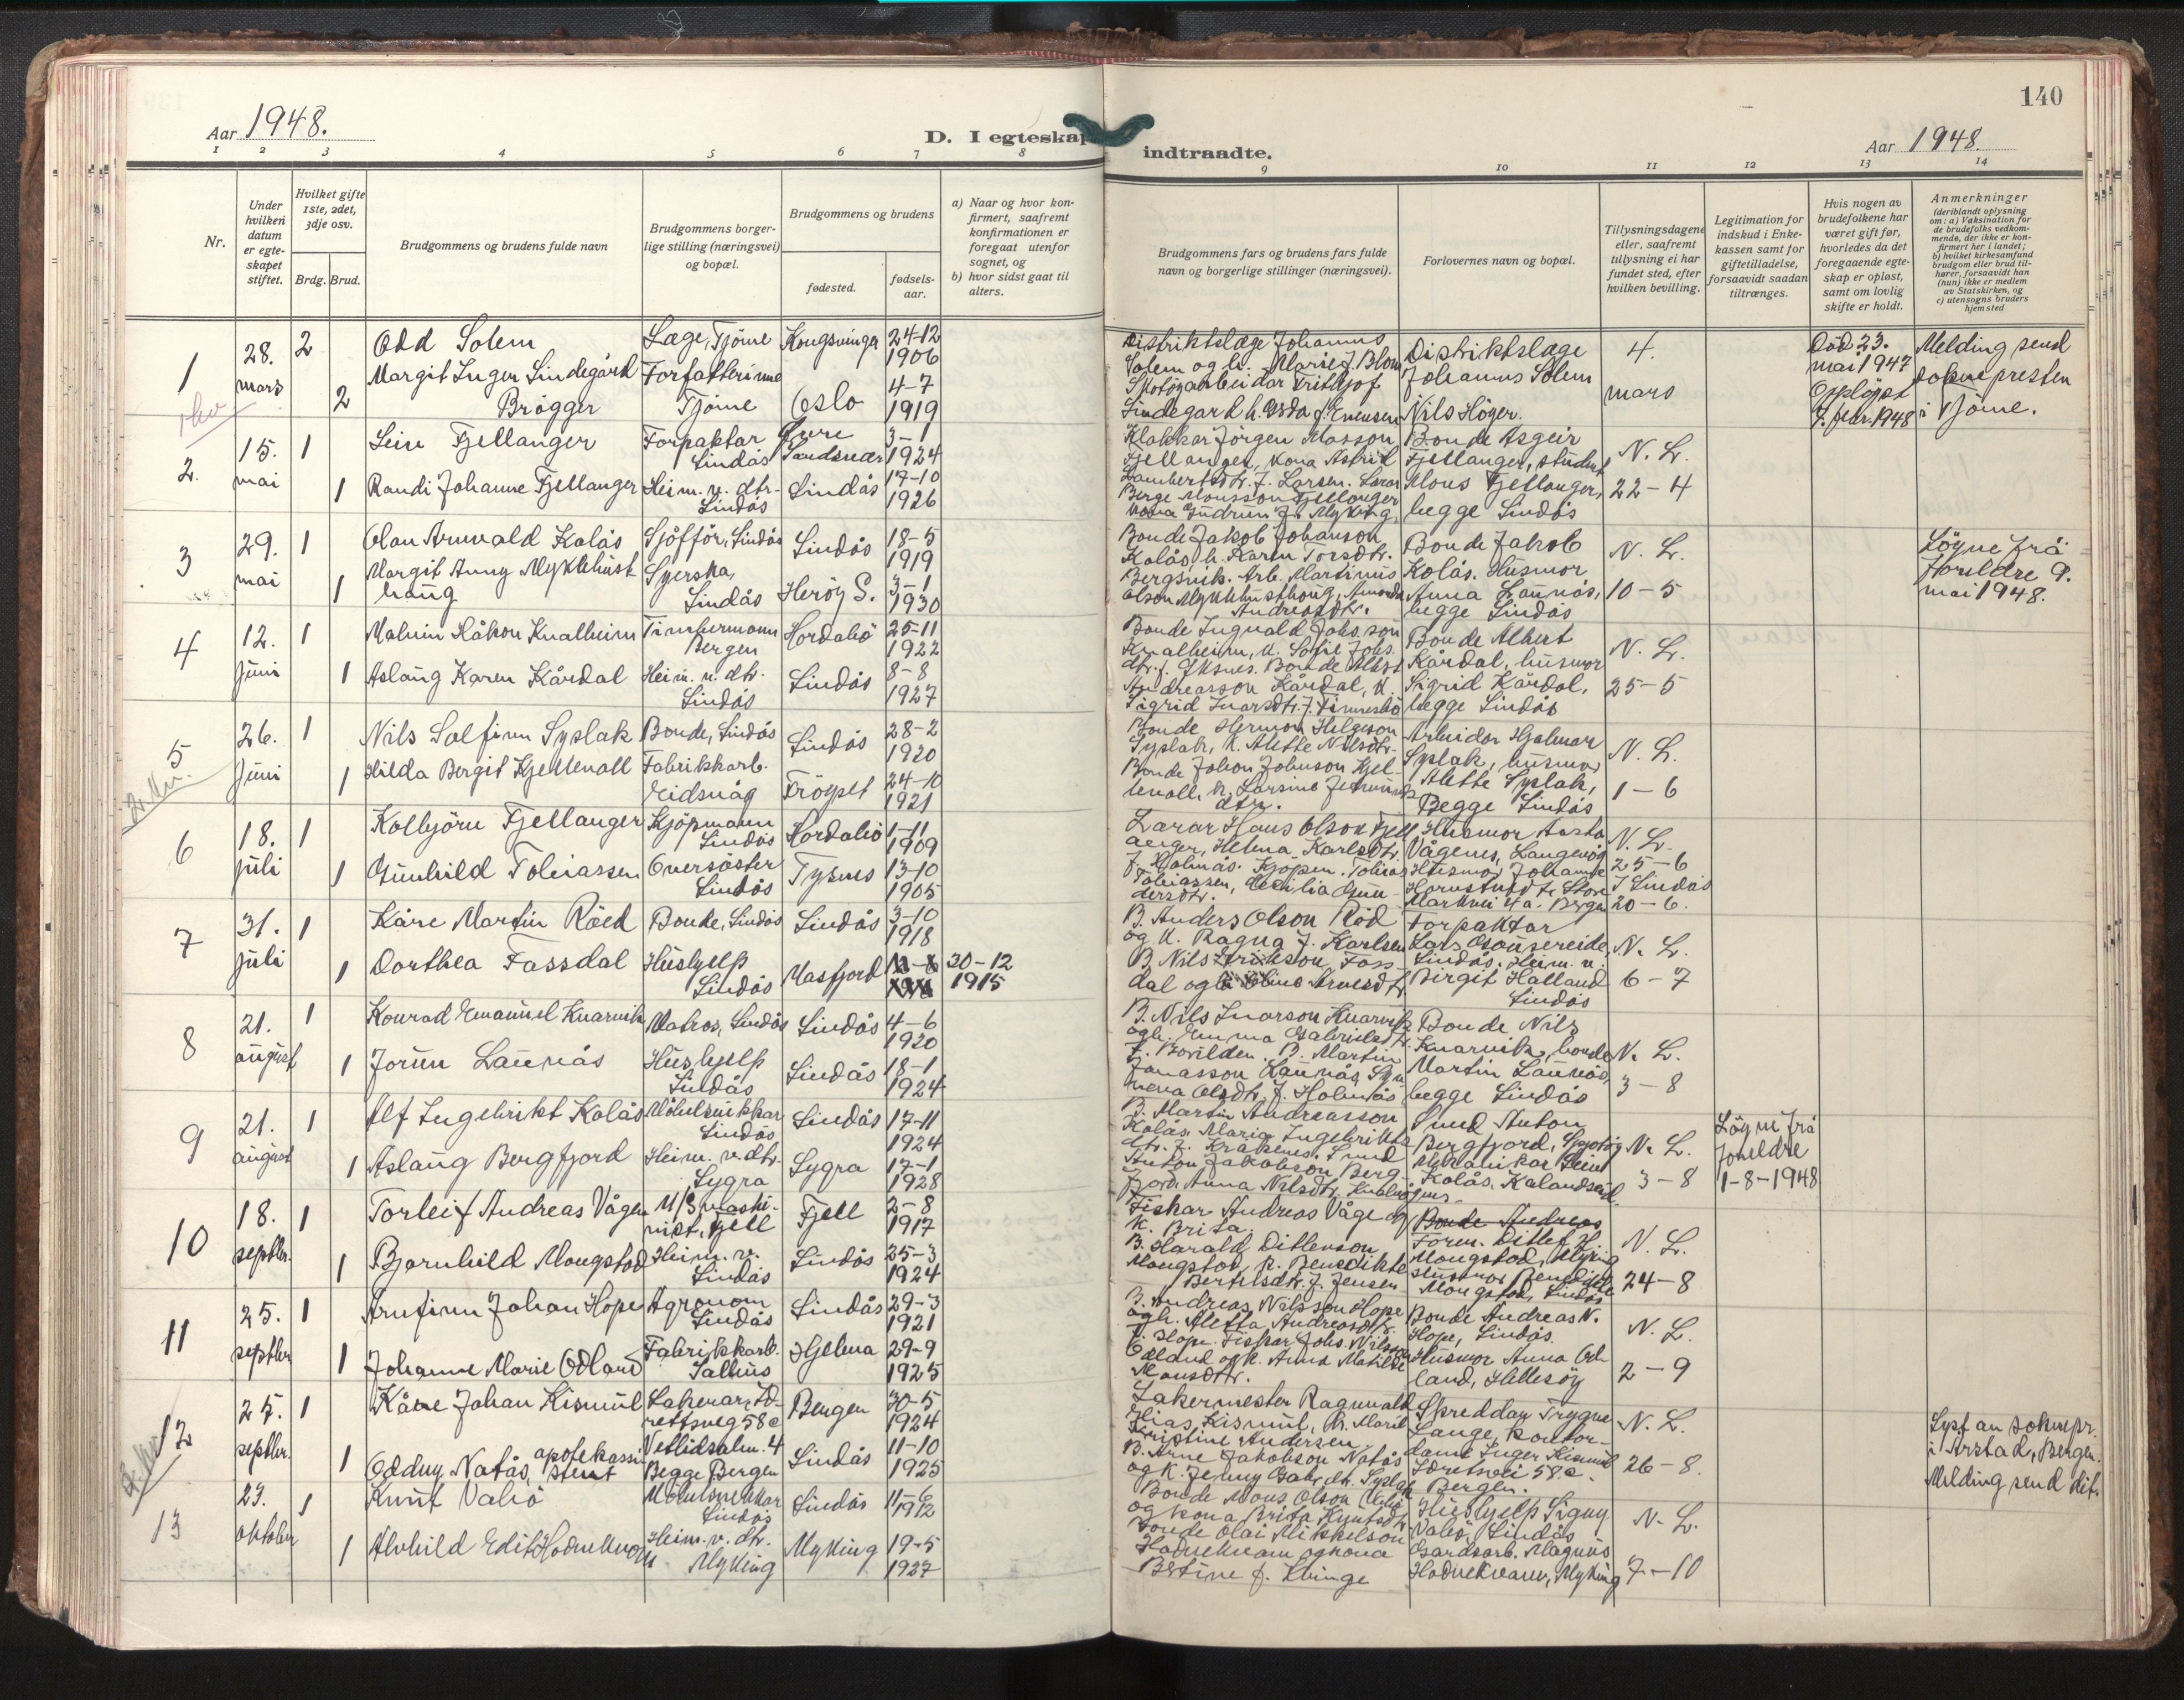 140
Aar 1948.
D. I egteskap
indtraadte.
Aar 1948.
1 2 3 4 5 6 7 8 9 10 11 12 13 14
Nr.
Under hvilken datum er egte-skapet stiftet.
Hvilket gifte 1ste, 2det, 3dje osv.
Brdg. Brud.
Brudgommens og brudens fulde navn
Brudgommens borger-lige stilling (næringsvei) og bopæl.
Brudgommens og brudens
fødested.
fødsels-aar.
a) Naar og hvor kon-firmert, saafremt konfirmationen er foregaat utenfor sognet, og
b) hvor sidst gaat til alters.
Brudgommens fars og brudens fars fulde navn og borgerlige stillinger (næringsvei).
Forlovernes navn og bopæl.
Tillysningsdagene eller, saafremt tillysning ei har fundet sted, efter hvilken bevilling.
Legitimation for indskud i Enke-kassen samt for giftetilladelse, forsaavidt saadan tiltrænges.
Hvis nogen av brudefolkene har været gift før, hvorledes da det foregaaende egte-skap er opløst, samt om lovlig skifte er holdt.
Anmerkninger
(deriblandt oplysning om: a) Vaksination for de brudefolks vedkom-mende, der ikke er kon-firmert her i landet; b) hvilket kirkesamfund brudgom eller brud til-hører, forsaavidt han (hun) ikke er medlem av Statskirken, og c) utensogns bruders hjemsted
1
28. mars
2
Odd Solem
Læge, Tjöme
Kongsvinger
24-12 1906
2
Margit Inger Lindegård Brögger
Forfatterinne Tjöme
Oslo
4-7 1919
Distriktslæge Johannes Solem og h. Marie J. Blom
Skotöyarbeidar Frithjof Lindegard h. Esda f. Evensen
Distriktslæge Johannes Solem
Nils Höger.
4. mars
Död 23. mai 1947
Opplöyst 7. febr. 1948
Melding send sokneprest en i Tjöme.
2.
15. mai
1
Leiv Fjellanger
Forpaktar Lindås
Övre Sandsvær
3-1 1924
1
Randi Johanne Fjellanger
Heim. v. dtr. Lindås
Lindås
17-10 1926
Klokkar Jörgen Monsson Fjellanger, kona Astrid Lambertsdtr. f. Larsen. Lærar Berge Monsson Fjellanger kona Gudrun f. Myking.
Bonde Asgeir Fjellanger, student Mons Fjellanger, begge Lindås
N. L.
22-4
3
29. mai
1
Olav Arnvald Kolås
Sjåfför, Lindås
Lindås
18-5 1919
1
Margit Anny Myklebusthaug
Syerska, Lindås
Heröy S.
3-1 1930
Bonde Jakob Johanson Kolås, h. Karen Torsdtr. Bergsvik. Arb. Martinus Olson Myklebusthaug, Amanda Andreasdtr.
Bonde Jakob Kolås. Husmor Anna Launås, begge Lindås
N. L.
10-5
Löyve frå foreldre 9. mai 1948.
4
12. juni
1
Malvin Håkon Kvalheim
Timbermann Bergen
Hordabö
25-11 1922
1
Aslaug Karen Kårdal
Heim. v. dtr. Lindås
Lindås
8-8 1927
Bonde Ingvald Johs.son Kvalheim, k. Sofie Johs.dtr. f. Yksnes. Bonde Albert Andreasson Kårdal, k. Sigrid Ivarsdtr. f. Fimreskö
Bonde Albert Kårdal, husmor Sigrid Kårdal, begge Lindås
N. L.
25-5
5
26. juni
1
Nils Solfinn Syslak
Bonde, Lindås
Lindås
28-2 1920
1
Hilda Bergit Kjellevoll
Fabrikkarb. Eidsvåg
Fröyset
24-10 1921
Bonde Herman Helgeson Syslak, k. Alette Nilsdtr. Bonde Johan Johnson Kjellevoll
Arbeidar Hjalmar Syslak, husmor Alette Syslak, Begge Lindås
N. L.
1-6
6
18. juli
1
Kolbjörn Fjellanger
Kjöpmann Lindås
Hordabö
1-11 1909
1
Gunhild Tobiassen
Oversöster Lindås
Tysnes
13-10 1905
Lærar Hans Olson Fjellanger, Helena Karlsdtr. f. Holmås. Kjöpm. Tobias Tobiassen, Cecilia Gunnersdtr.
Husmor Aasta Vågenes, Langevåg
Husmor Johanne
Store Markvei 4a. Bergen
N. L.
25-6
I Lindås 20-6.
7
31. juli
1
Kåre Martin Röed
Bonde, Lindås
Lindås
3-10 1918
1
Dorthea Fossdal
Hushjelp Lindås
Masfjord
30-12 1915
B. Anders Olson Röd og k. Ragna f. Karlsen
B. Nils Erikson Fossdal og
Forpaktar Lars Gausereide, Lindås. Heim. v. Birgit Halland Lindås
N. L.
6-7
8
21. august
1
Konrad Emanuel Kvarvik
Matros, Lindås
Lindås
4-6 1920
1
Jorun Launås
Hushjelp Lindås
Lindås
18-1 1924
B. Nils Ivarson Kvarvik og h. Emma Gabrielsdtr. f. Bovilden. B. Martin Jonasson Launås, Synneva Olsdtr. f. Holmås
Bonde Nils Kvarvik, bonde Martin Launås, begge Lindås
N. L.
3-8
9
21. august
1
Alf Ingebrikt Kolås
Möbelsnikkar Lindås
Lindås
17-11 1924
1
Aslaug Bergfjord
Heim. v. dtr. Lygra
Lygra
17-1 1928
B. Martin Andreasson Kolås, Maria Ingebriktsdtr. f. Kråkenes. Smed Anton Jakobson Bergfjord, Anna Nilsdtr.
Smed Anton Bergfjord,
Mekanikar Leiv Kolås, Kalandseid
N. L.
3-8
Löyve frå foreldre 1-8-1948
10
18. septbr.
1
Torleif Andreas Vågen
M/S maskinist, Fjell
Fjell
2-8 1917
1
Bjørnhild Mongstad
Heim. v. Lindås
Lindås
25-3 1924
Fiskar Andreas Våge og k. Brita.
B. Harald Ditlevson Mongstad, k. Benedikte Bertelsdtr. f. Jensen
Bonde Andreas
Form. Ditlef H. Mongstad, Myking
Husmor Benedikte Mongstad, Lindås
N. L.
24-8
11
25. septbr
1
Arnfinn Johan Hope
Agronom Lindås
Lindås
29-3 1921
1
Johanne Marie Odland
Fabrikkarb. Salhus
Hjelma
29-9 1925
B. Andreas Nilsson Hope og h. Aletta Andreasdtr. f. Hope. Fiskar Johs. Nilsson Odland og k. Anna Matilde Monsdtr.
Bonde Andreas N. Hope, Lindås.
Husmor Anna Odland, Hellesöy
N. L.
2-9
12
25. septbr.
1
Kåre Johan Kismul
Lakerar, Idrettsveg 58c
Bergen
30-5 1924
1
Oddny Natås, apotekassistent
Vetlidsalm. 4
Begge Bergen
Lindås
11-10 1925
Lakermester Ragnvald Elias Kismul, k. Marie Kristine Andersen
B. Arne Jakobson Natås og k. Jenny Gabr.dtr. Syslak
Skreddar Trygve Lange, Kontordame Inger Kismul Idretsvei 58c. Bergen.
N. L.
26-8.
Lyst av sokenpr. i Årstad, Bergen. Melding send dit.
13
23. oktober
1
Knut Valö
Möbelsnekkar Lindås
Lindås
11-6 1912
1
Alvhild Edit Hodnekvam
Heim. v. dtr. Myking
Myking
19-5 1927
Bonde Mons Olson Valö og kona Brita Knutsdtr
Bonde Olai Mikkelson Hodnekvam og kona Bertine f. Kvinge
Hushjelp Signy Valö, Lindås
Gardsarb. Magnus Hodnekvam, Myking
N. L.
7-10